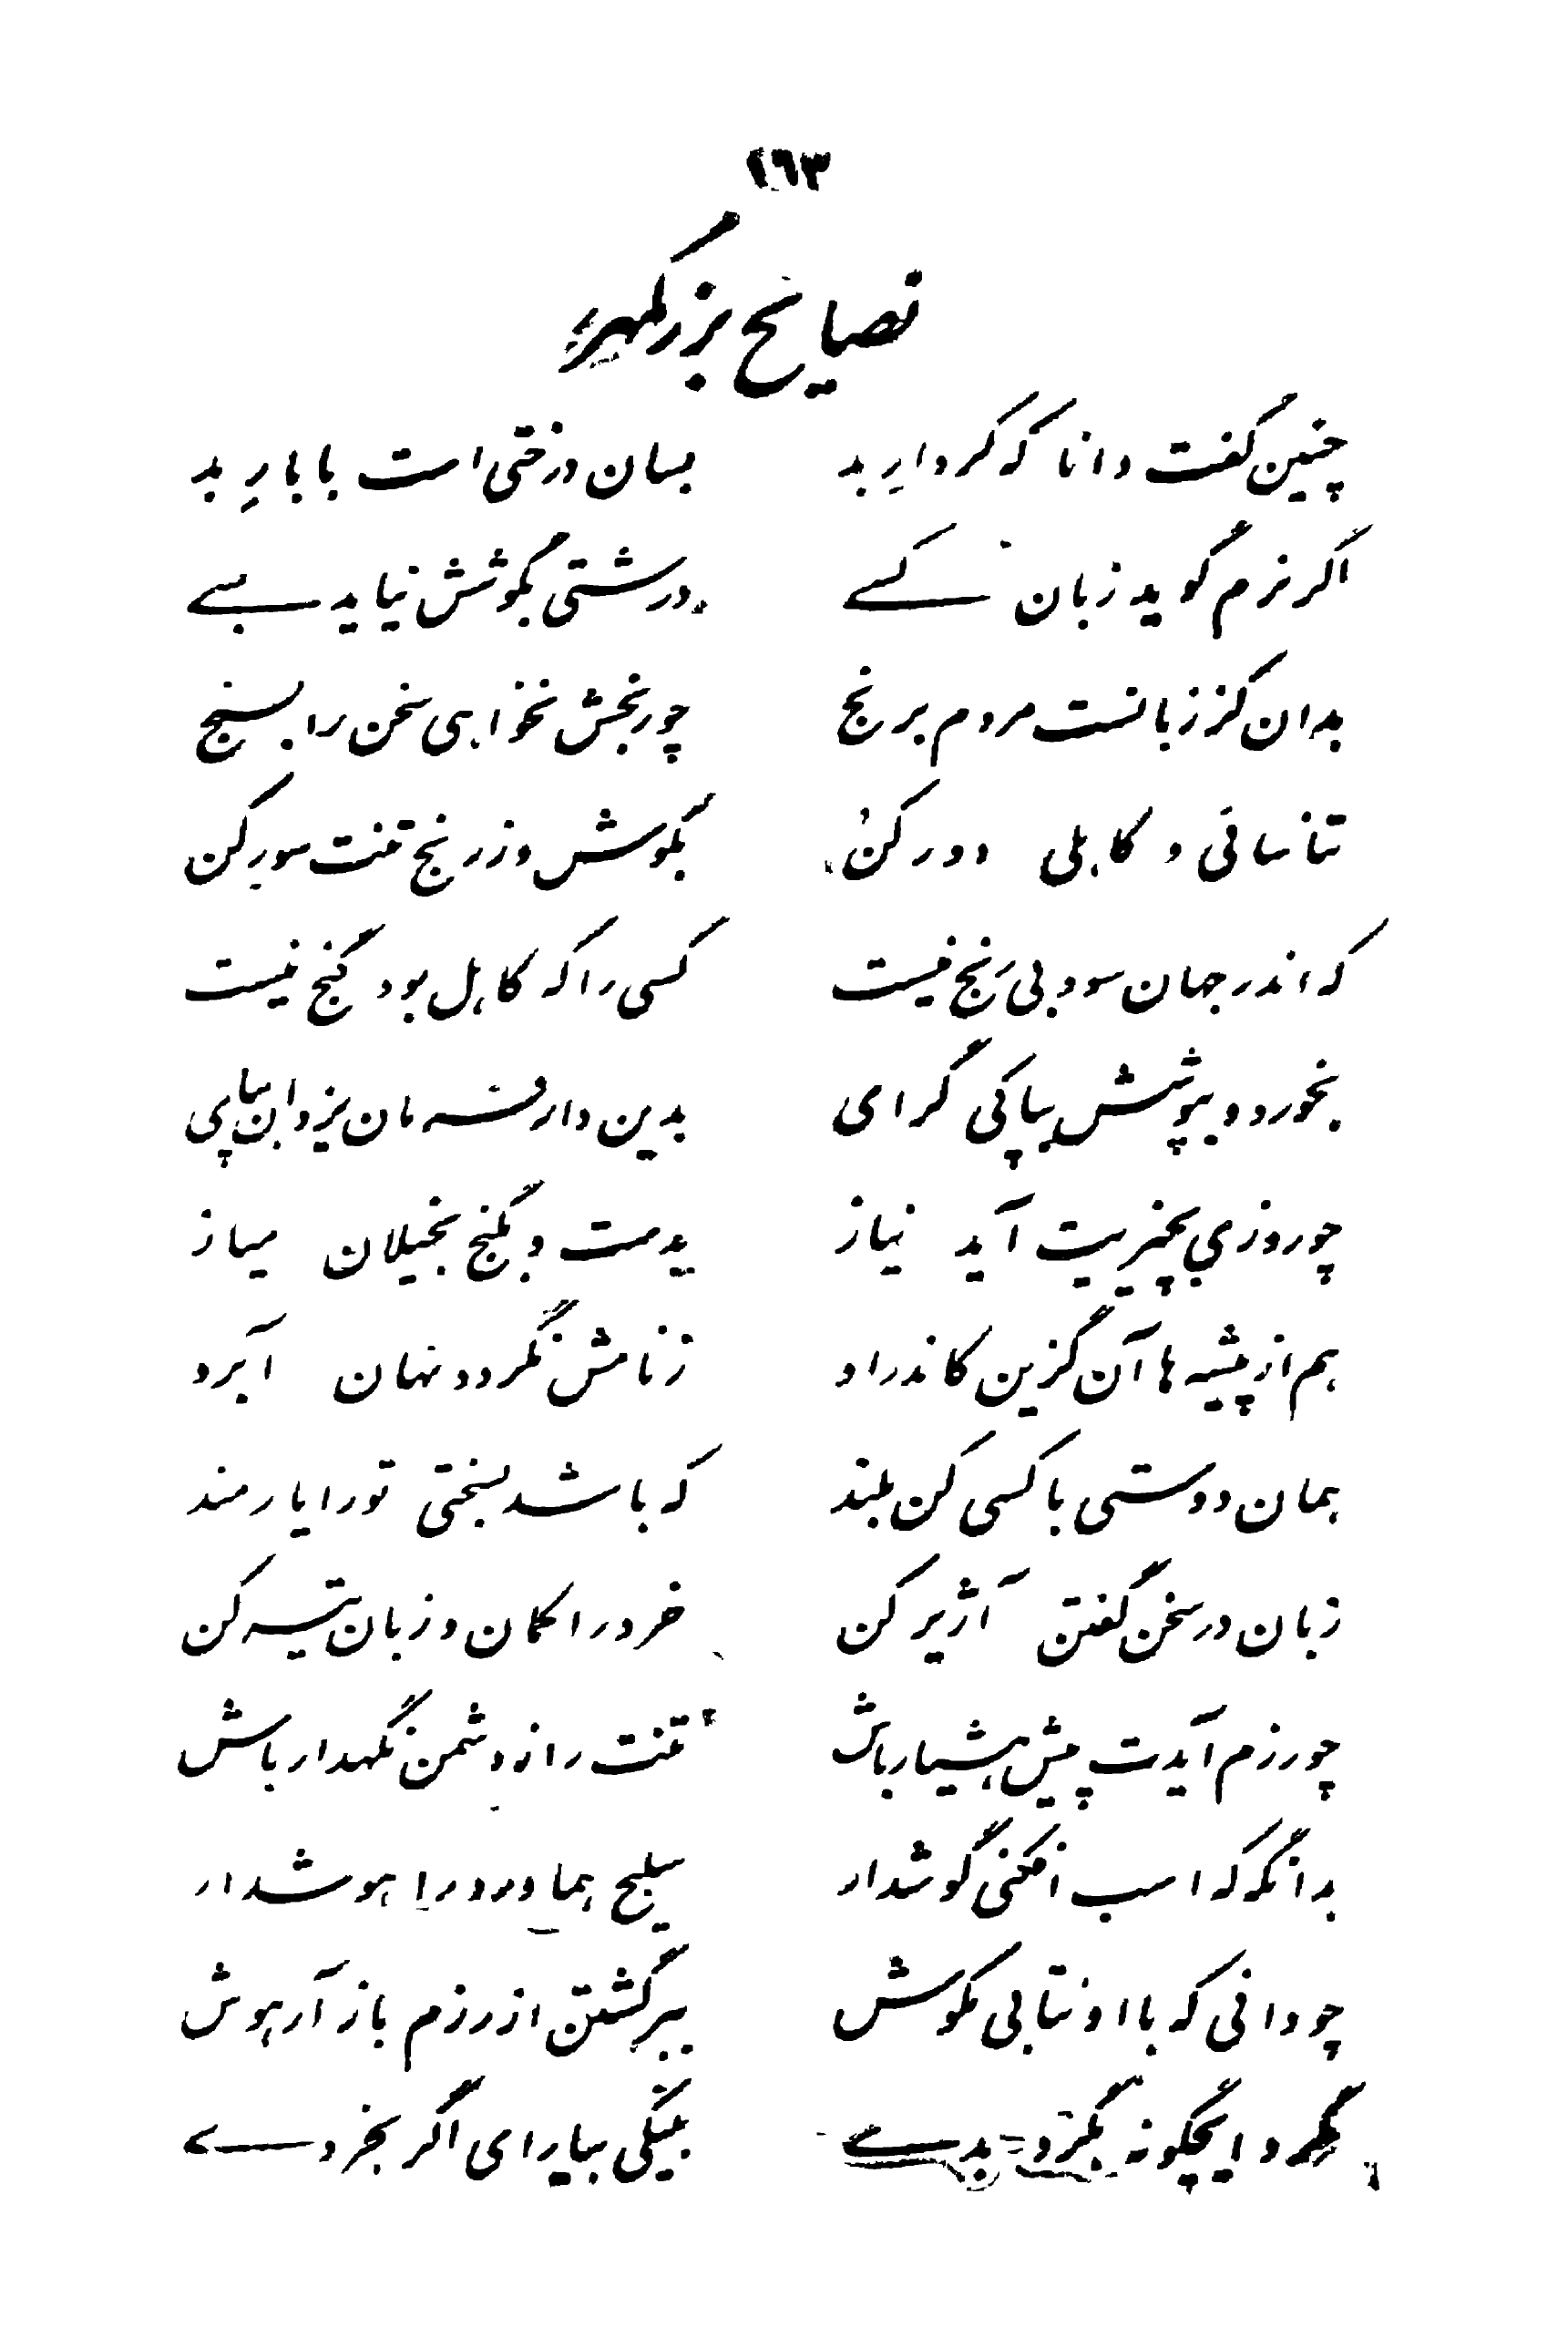 ١٦٣
نصایح بزرگمهر
چنین گفت دانا که کردارِ بد بسان درختی است با بارِ بد
اگر نرم گوید زبان کسے درشتی بگوشش نیاید بسے
بدان کز زبانست مردم برنج چو رنجش نخواهی سخن را بسنج
تن‌آسانی و کاهلی دور کن بکوش و ز رنج تنت سور کن
که اندر جهان سود بی رنج نیست کسی را که کاهل بود گنج نیست
بخورد و بپوشش بپاکی گرای بدین دار فرمان یزدان بپای
چو روزی بچیزیت آید نیاز بدست و بگنج بخیلان میاز
هم از پیشه ها آن گزین کاندر او ز نامش نگردد نهان آبرو
همان دوستی با کسی کن بلند که باشد بسختی تو را یارمند
زبان در سخن گفتن آژیر کن خرد را کمان و زبان تیر کن
چو رزم آیدت پیش هشیار باش تنت را ز دشمن نگهدار باش
بدانگه که اسب افکنی گوشدار سلیح هماورد را هوشدار
چو دانی که با او نتابی مکوش ببرگشتن از رزم باز آر هوش
مگرد ایچگونه بگرد بدے بنیکی بیارای اگر بخردے